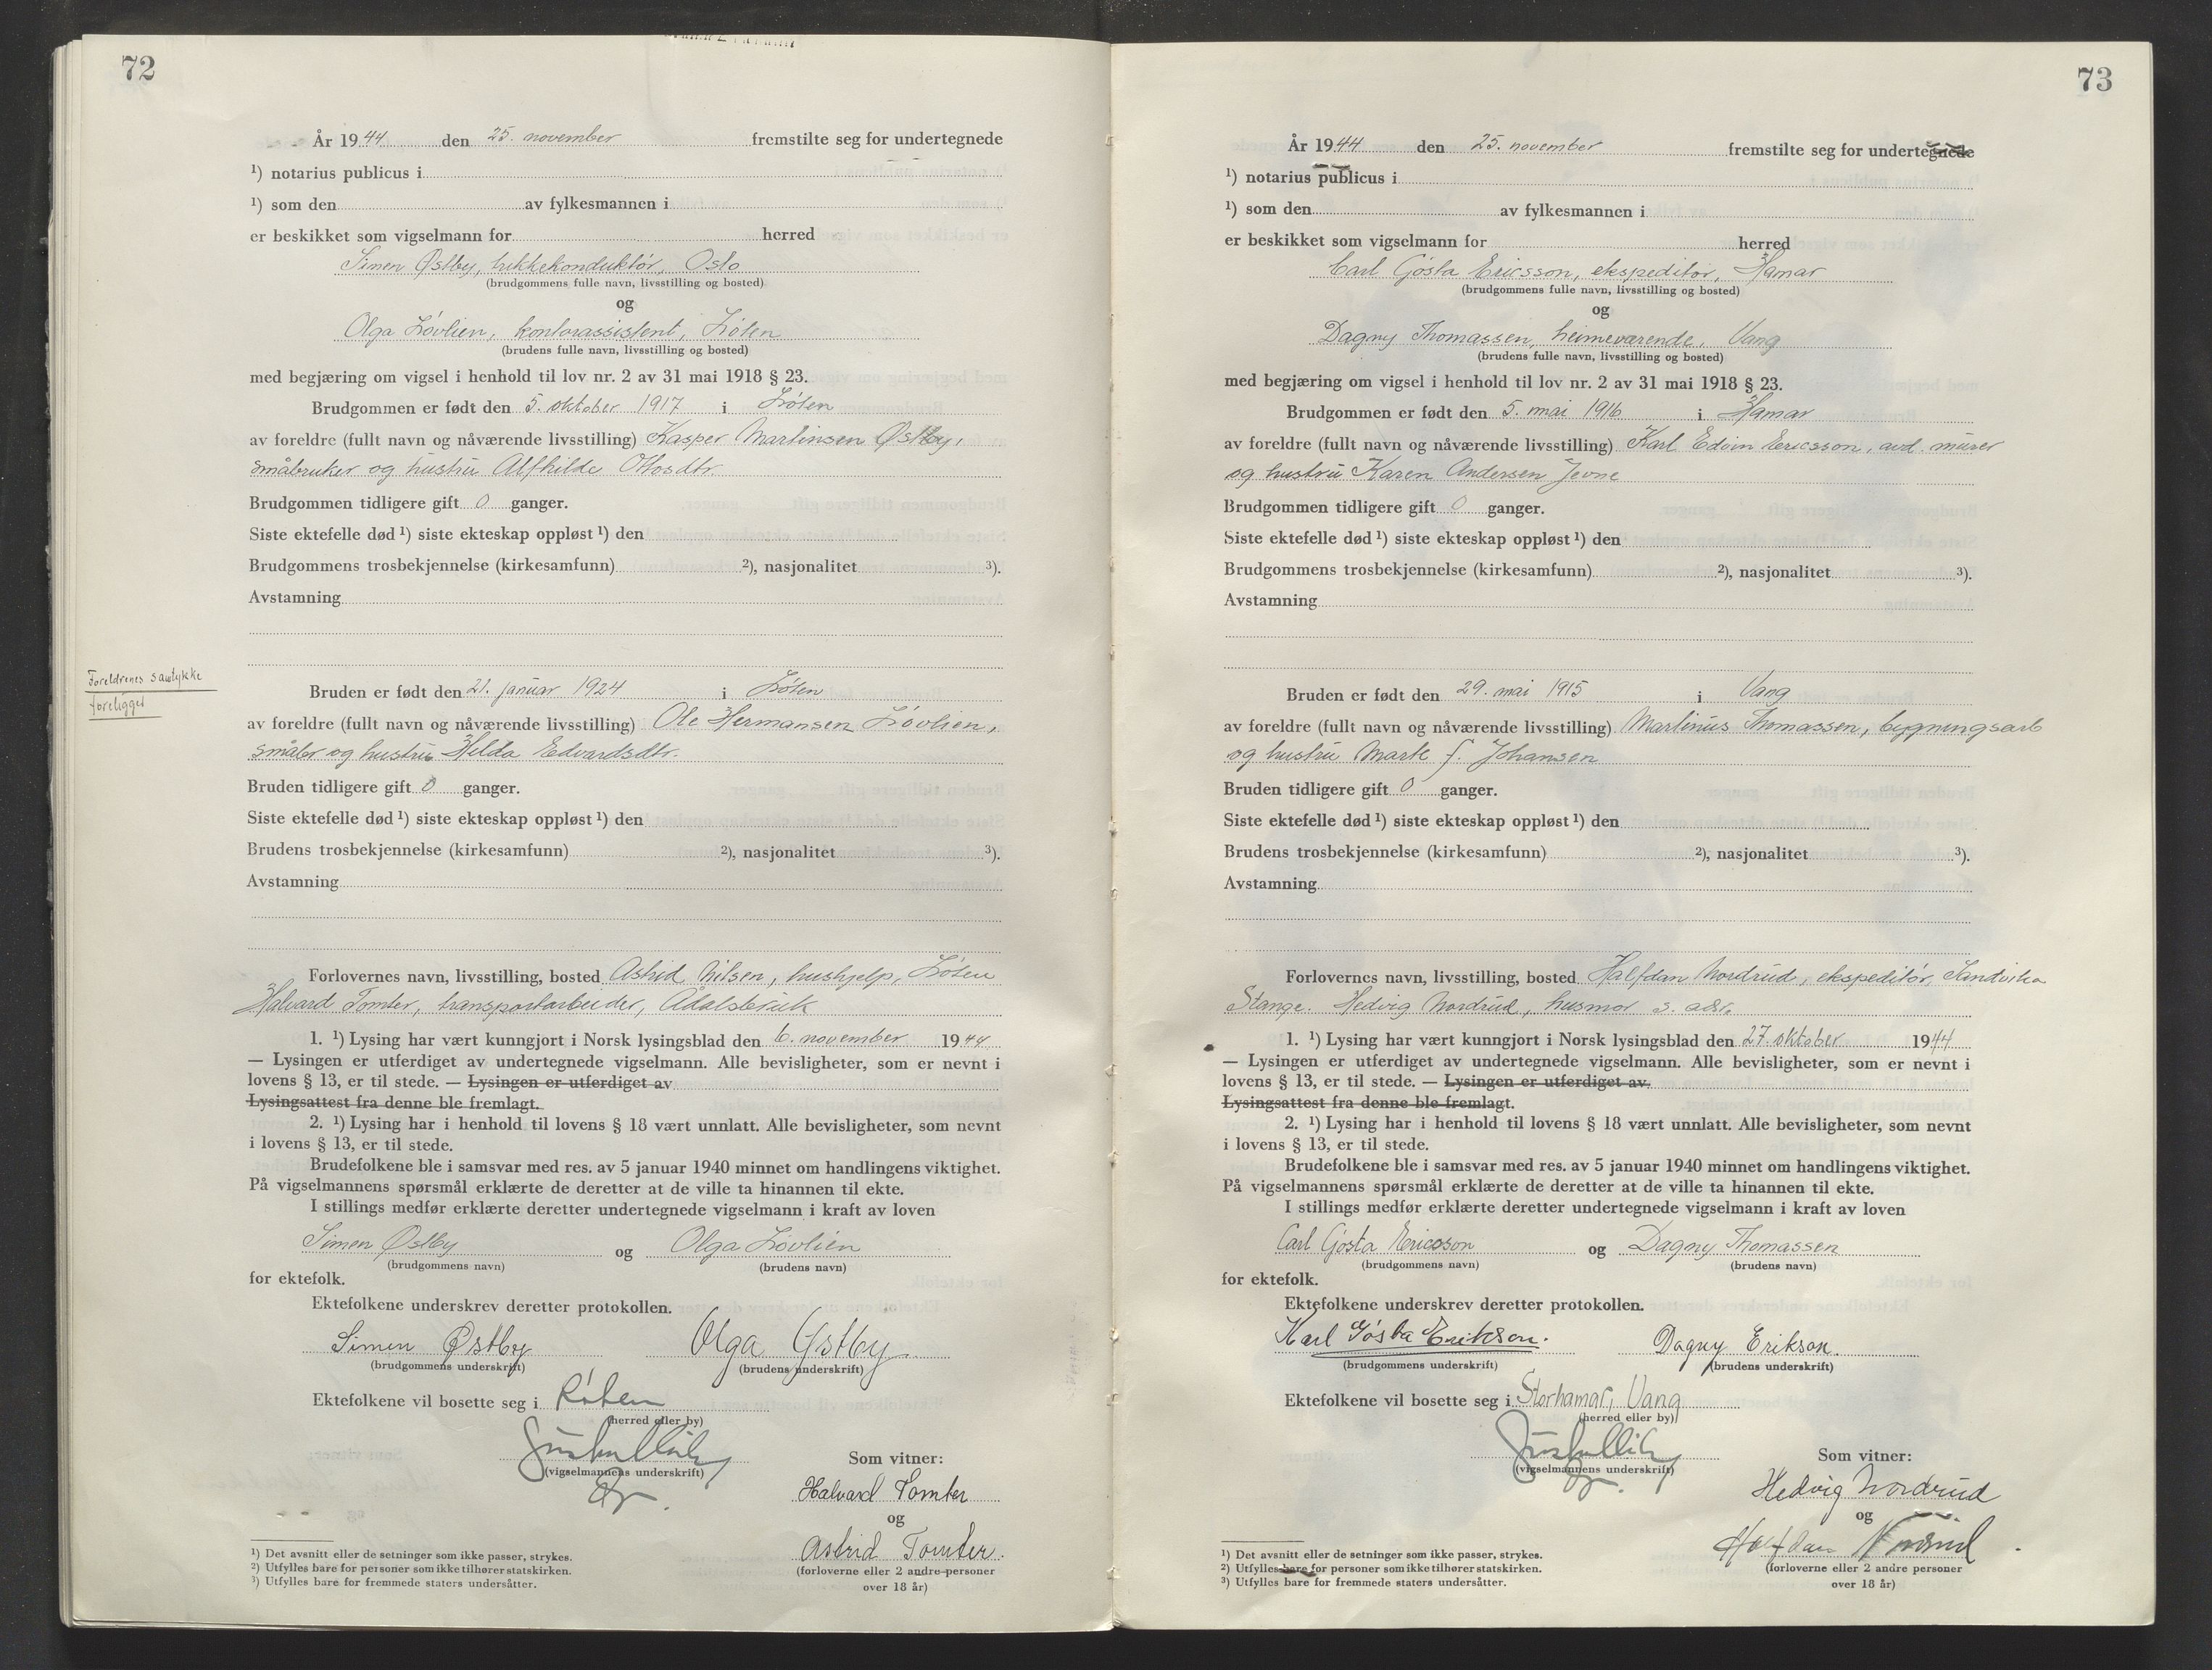 72
År 1944 den 25. november fremstilte seg for undertegnede
¹) notarius publicus i
¹) som den av fylkesmannen i
er beskikket som vigselmann for herred
Simen Østby, trikkekonduktør, Oslo
(brudgommens fulle navn, livsstilling og bosted)
og
Olga Løvlien, kontorassistent, Løten
(brudens fulle navn, livsstilling og bosted)
med begjæring om vigsel i henhold til lov nr. 2 av 31 mai 1918 § 23.
Brudgommen er født den 5. oktober 1917 i Løten
av foreldre (fullt navn og nåværende livsstilling) Kasper Martinsen Østby,
småbruker og hustru Alfhilde Ottosdtr.
Brudgommen tidligere gift 0 ganger.
Siste ektefelle død ¹) siste ekteskap oppløst ¹) den
Brudgommens trosbekjennelse (kirkesamfunn) ²), nasjonalitet ³).
Avstamning
Foreldrenes samtykke
foreligger
Bruden er født den 21. januar 1924 i Løten
av foreldre (fullt navn og nåværende livsstilling) Ole Hermansen Løvlien,
småbr og hustru Hilda Edvardsdtr.
Bruden tidligere gift 0 ganger.
Siste ektefelle død ¹) siste ekteskap oppløst ¹) den
Brudens trosbekjennelse (kirkesamfunn) ²), nasjonalitet ³).
Avstamning
Forlovernes navn, livsstilling, bosted Astrid Nilsen, hushjelp, Løten
Halvard Tomter, transportarbeider, Ådalsbruk
1. ¹) Lysing har vært kunngjort i Norsk lysingsblad den 6. november 1944
— Lysingen er utferdiget av undertegnede vigselmann. Alle bevisligheter, som er nevnt i
lovens § 13, er til stede. — Lysingen er utferdiget av
Lysingsattest fra denne ble fremlagt.
2. ¹) Lysing har i henhold til lovens § 18 vært unnlatt. Alle bevisligheter, som nevnt
i lovens § 13, er til stede.
Brudefolkene ble i samsvar med res. av 5 januar 1940 minnet om handlingens viktighet.
På vigselmannens spørsmål erklærte de deretter at de ville ta hinannen til ekte.
I stillings medfør erklærte deretter undertegnede vigselmann i kraft av loven
Simen Østby og Olga Løvlien
(brudgommens navn) (brudens navn)
for ektefolk.
Ektefolkene underskrev deretter protokollen.
Simen Østby Olga Østby
(brudgommens underskrift) (brudens underskrift)
Ektefolkene vil bosette seg i Løten
(herred eller by)
(vigselmannens underskrift)
Som vitner:
Halvard Tomter
og
Astrid Tomter.
(forloverne eller 2 andre personer
over 18 år)
¹) Det avsnitt eller de setninger som ikke passer, strykes.
²) Utfylles bare for personer som ikke tilhører statskirken.
³) Utfylles bare for fremmede staters undersåtter.
73
År 1944 den 25. november fremstilte seg for undertegnede
¹) notarius publicus i
¹) som den av fylkesmannen i
er beskikket som vigselmann for herred
Carl Gösta Ericsson, ekspeditør, Hamar
(brudgommens fulle navn, livsstilling og bosted)
og
Dagny Thomassen, heimeværende, Vang
(brudens fulle navn, livsstilling og bosted)
med begjæring om vigsel i henhold til lov nr. 2 av 31 mai 1918 § 23.
Brudgommen er født den 5. mai 1916 i Hamar
av foreldre (fullt navn og nåværende livsstilling) Karl Edvin Ericsson, avd. murer
og hustru Karen Andersen Jevne
Brudgommen tidligere gift 0 ganger.
Siste ektefelle død ¹) siste ekteskap oppløst ¹) den
Brudgommens trosbekjennelse (kirkesamfunn) ²), nasjonalitet ³).
Avstamning
Bruden er født den 29. mai 1915 i Vang
av foreldre (fullt navn og nåværende livsstilling) Martinus Thomassen, bygningsarb
og hustru Marte f. Johansen
Bruden tidligere gift 0 ganger.
Siste ektefelle død ¹) siste ekteskap oppløst ¹) den
Brudens trosbekjennelse (kirkesamfunn) ²), nasjonalitet ³).
Avstamning
Forlovernes navn, livsstilling, bosted Halfdan Nordrud, ekspeditør, Sandvika
Stange. Hedvig Nordrud, husmor s. adr.
1. ¹) Lysing har vært kunngjort i Norsk lysingsblad den 27. oktober 1944
— Lysingen er utferdiget av undertegnede vigselmann. Alle bevisligheter, som er nevnt i
lovens § 13, er til stede. — Lysingen er utferdiget av
Lysingsattest fra denne ble fremlagt.
2. ¹) Lysing har i henhold til lovens § 18 vært unnlatt. Alle bevisligheter, som nevnt
i lovens § 13, er til stede.
Brudefolkene ble i samsvar med res. av 5 januar 1940 minnet om handlingens viktighet.
På vigselmannens spørsmål erklærte de deretter at de ville ta hinannen til ekte.
I stillings medfør erklærte deretter undertegnede vigselmann i kraft av loven
Carl Gösta Ericsson og Dagny Thomassen
(brudgommens navn) (brudens navn)
for ektefolk.
Ektefolkene underskrev deretter protokollen.
Karl Gösta Erikson. Dagny Erikson.
(brudgommens underskrift) (brudens underskrift)
Ektefolkene vil bosette seg i Storhamar, Vang
(herred eller by)
(vigselmannens underskrift)
Som vitner:
Hedvig Nordrud
og
Halfdan Nordrud
(forloverne eller 2 andre personer
over 18 år)
¹) Det avsnitt eller de setninger som ikke passer, strykes.
²) Utfylles bare for personer som ikke tilhører statskirken.
³) Utfylles bare for fremmede staters undersåtter.